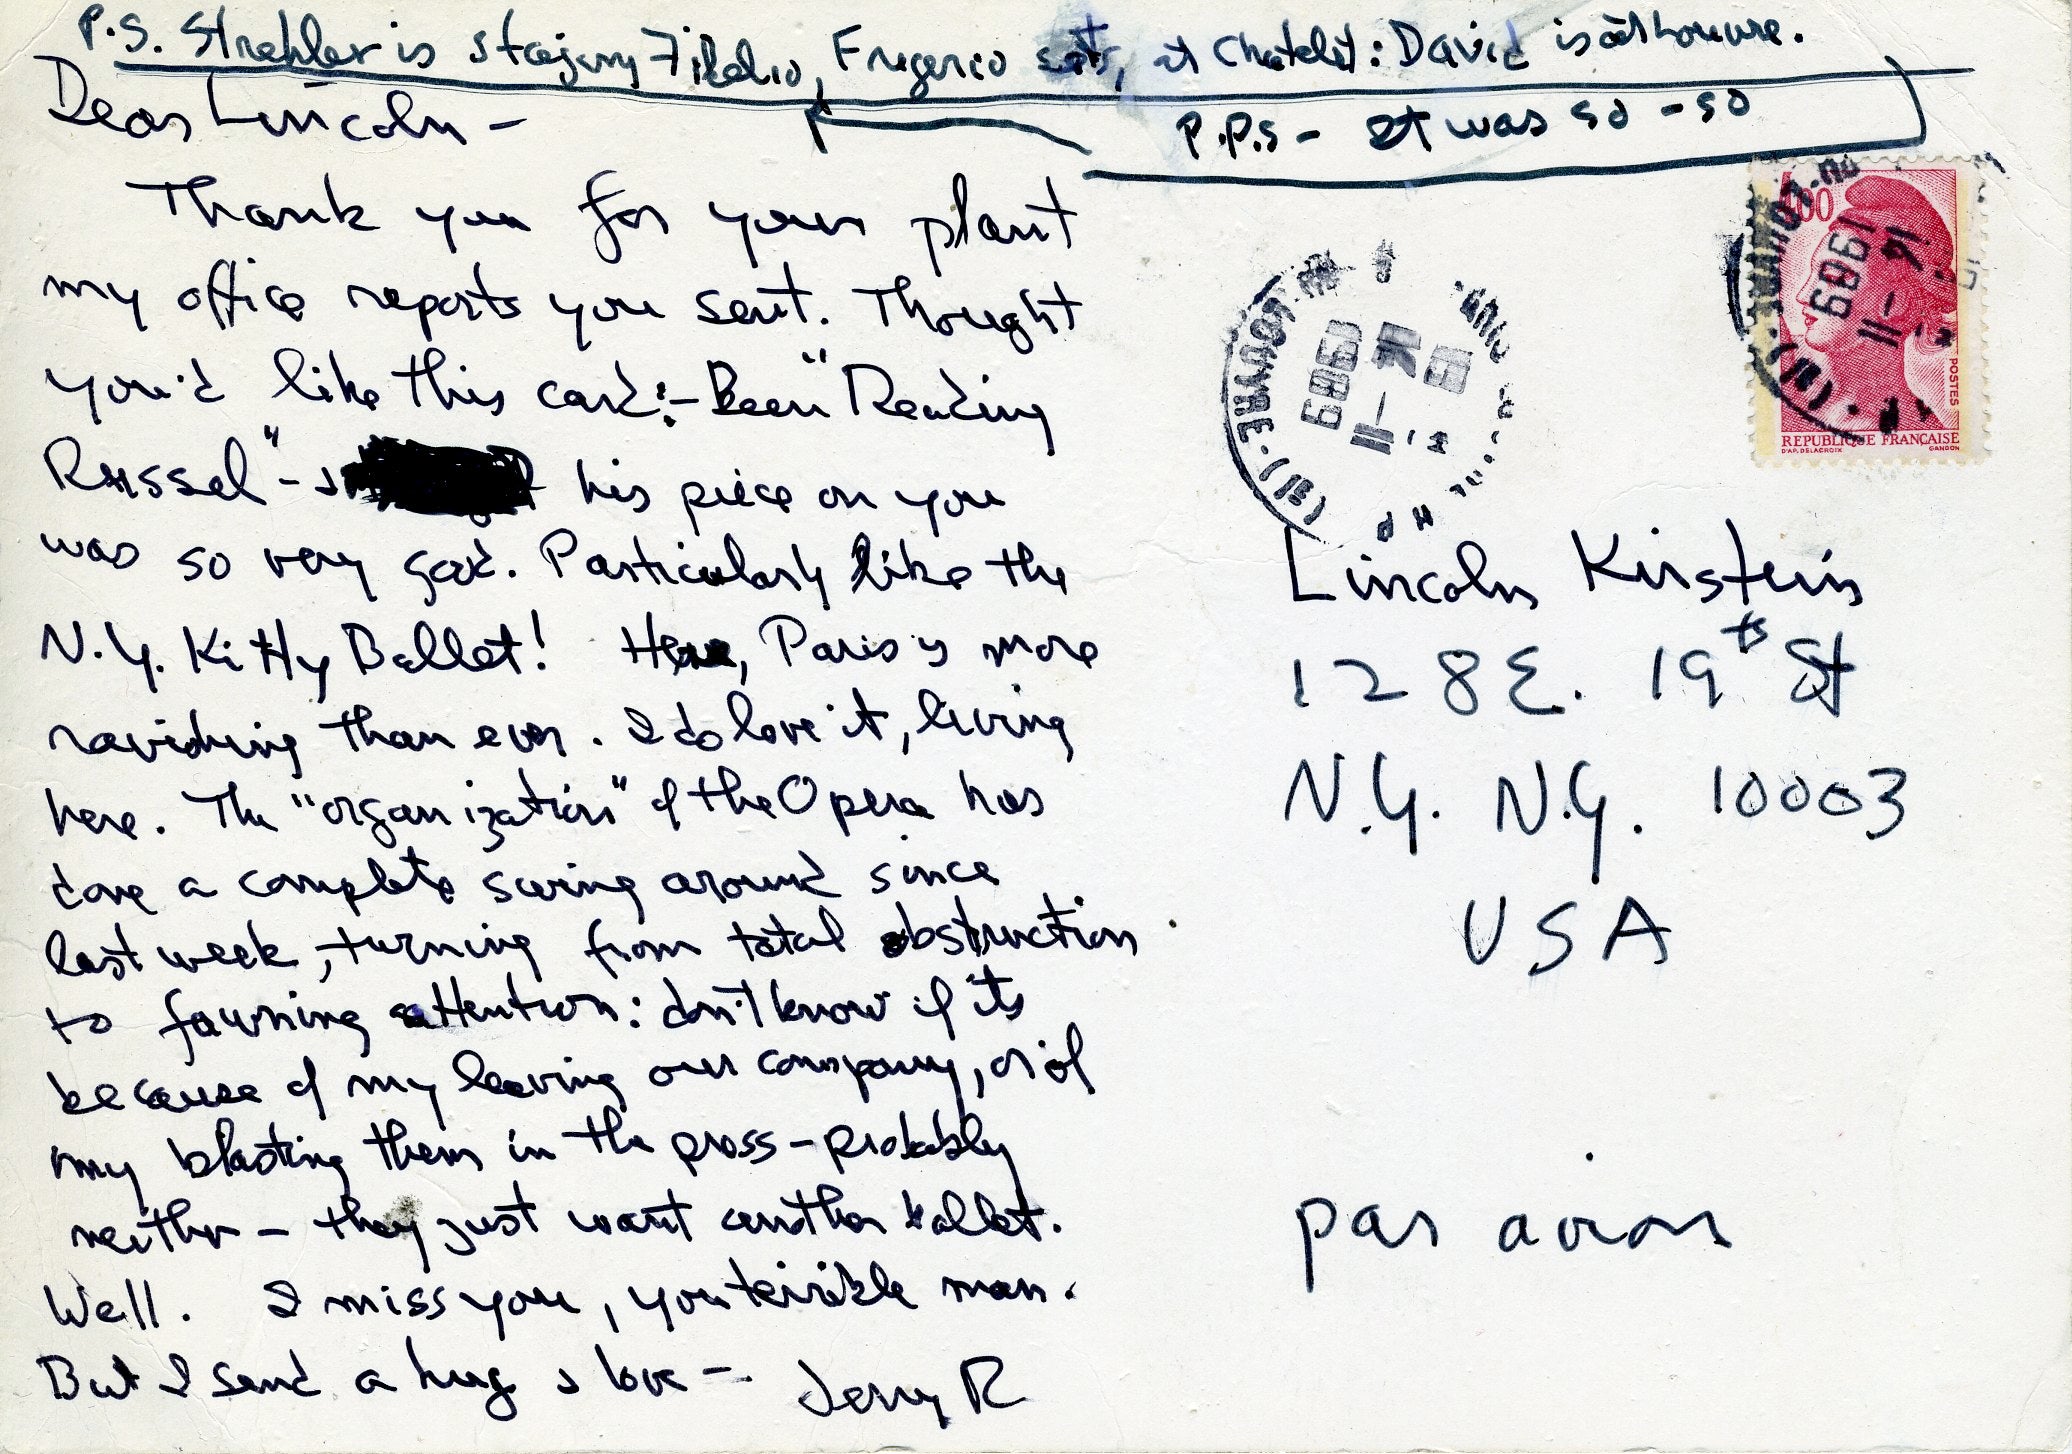 P.S. Strehler is staging Fidelio, Frigerio sets, at Chatelet: David is at Louvre.
P.P.S - It was so-so
Dear Lincoln -
Thank you for your plant
my office reports you sent. Thought
you'd like this card:- Been "Reading
Russel" - his piece on you
was so very good. Particularly like the
N.Y. Kitty Ballet! Here, Paris is more
ravishing than ever. I do love it, living
here. The "organization" of the Opera has
done a complete swing around since
last week, turning from total obstruction
to fawning attention: don't know if its
because of my leaving our company, or of
my blasting them in the press - probably
neither - they just want another ballet.
Well. I miss you, you terrible man.
But I send a hug & love - Jerry R
1989
-11
16
POSTES
REPUBLIQUE FRANÇAISE
D'AP. DELACROIX
GANDON
1989
-11
Lincoln Kirstein
128 E. 19th St
N.Y. N.Y. 10003
USA
par avion